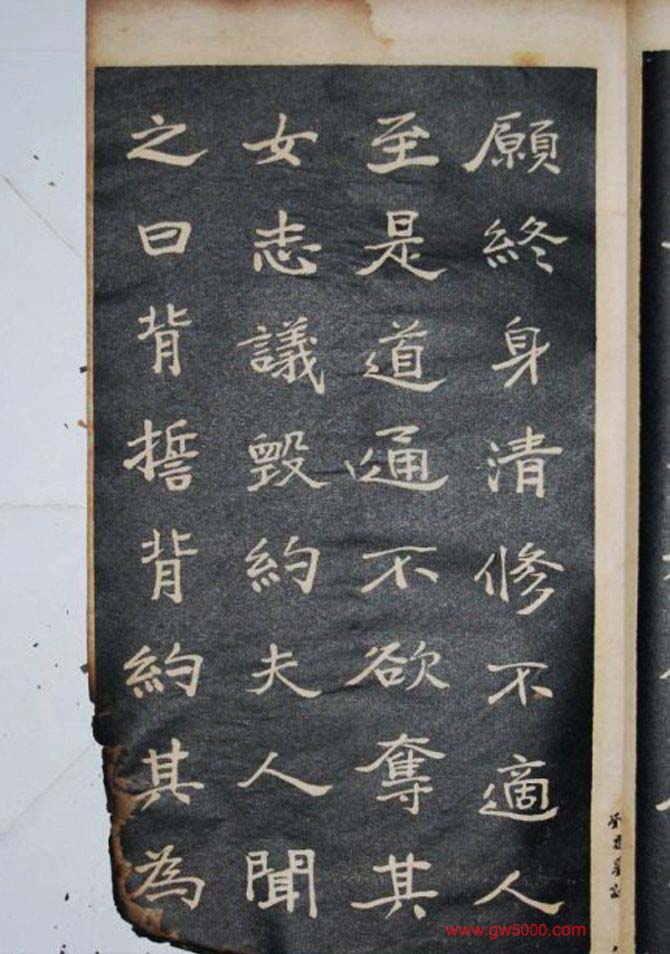 願終身清修不適人
至是道通不欲奪其
女志議毀約夫人聞
之曰背誓背約其為
www.gw5000.com